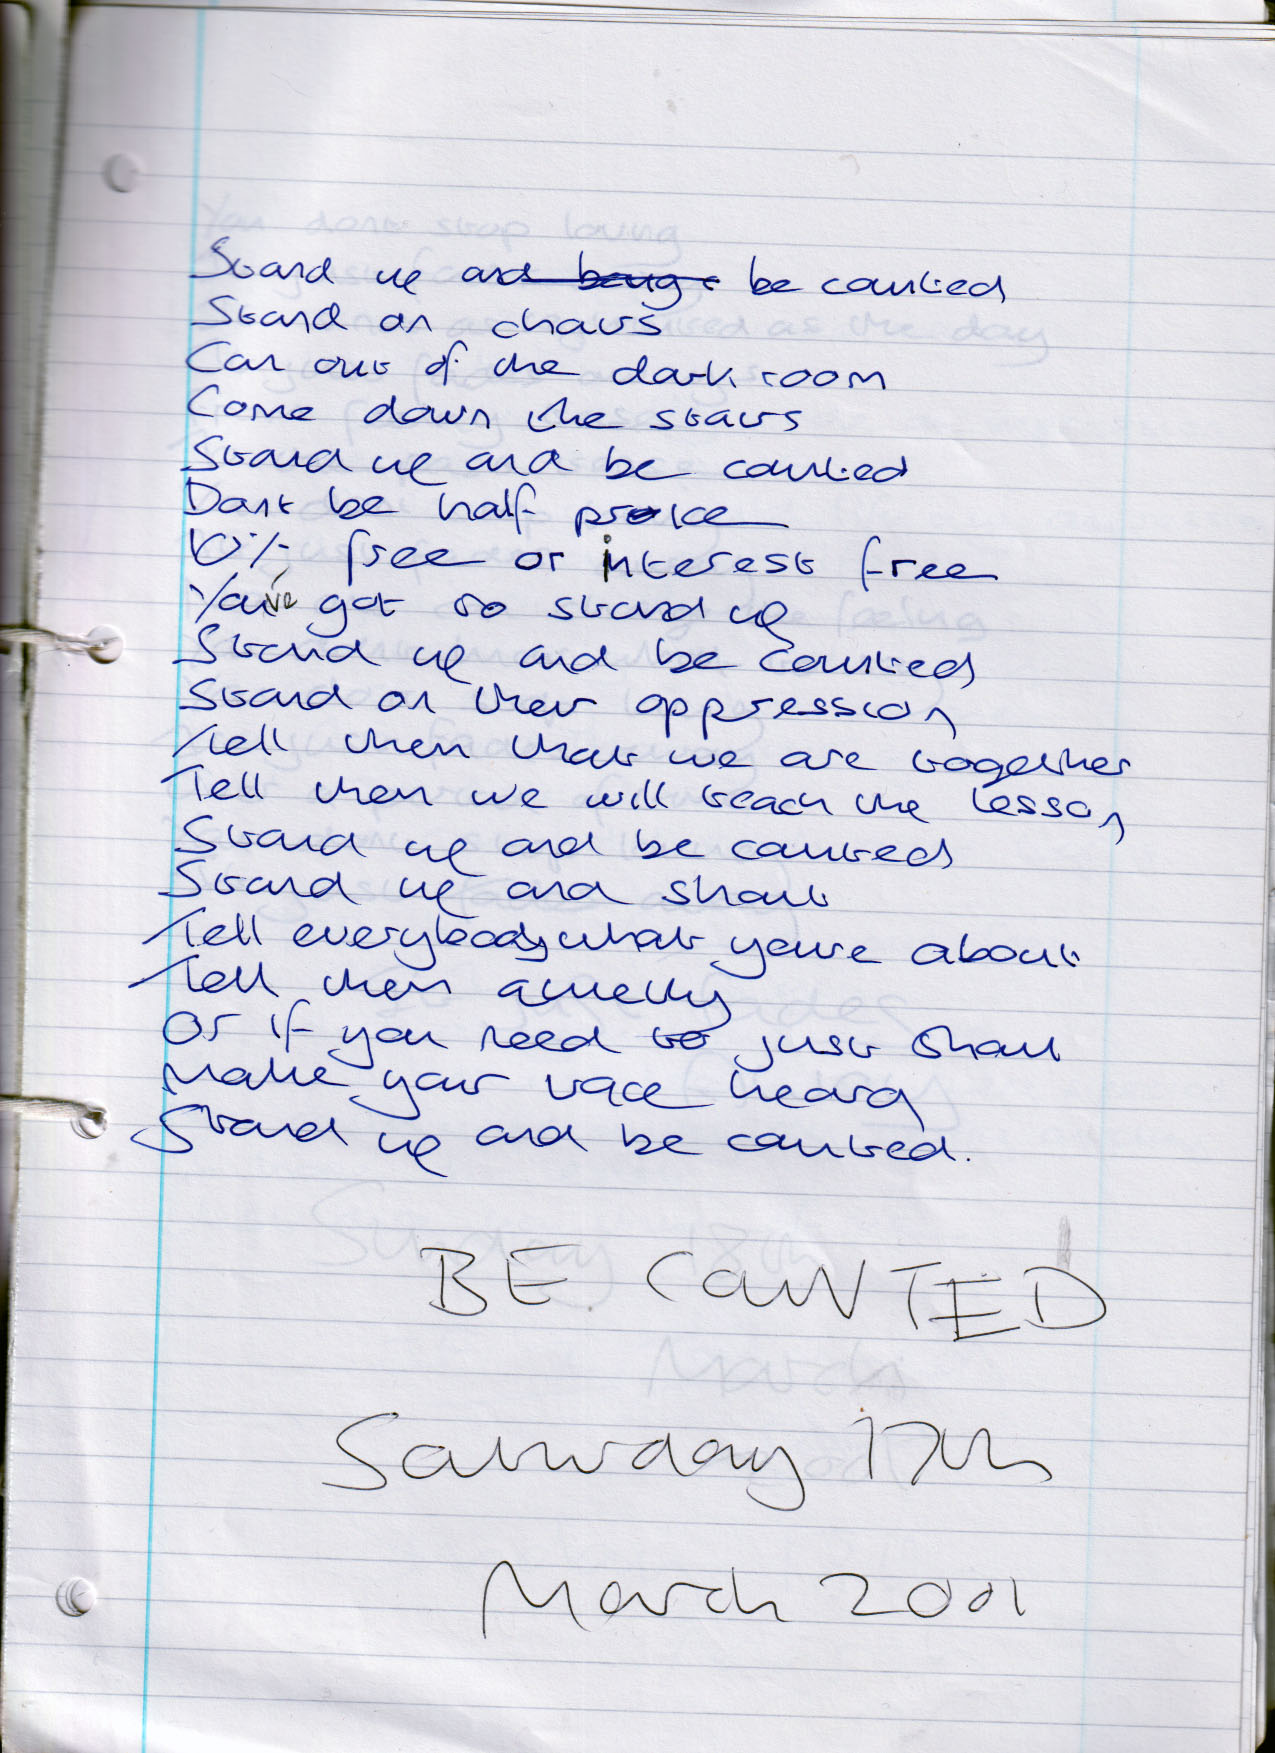 Stand up and being be counted
Stand on chairs
Com out of the dark room
Come down the stairs
Stand up and be counted
Dont be half price
10% free or interest free
You've got to stand up
Stand up and be counted
Stand on their oppression
Tell them that we are together
Tell them we will teach the lesson
Stand up and be counted
Stand up and shout
Tell everybody what youre about
Tell them quietly
Or if you need to just shout
Make your voice heard
Stand up and be counted.
BE COUNTED
Saturday 17th
March 2001